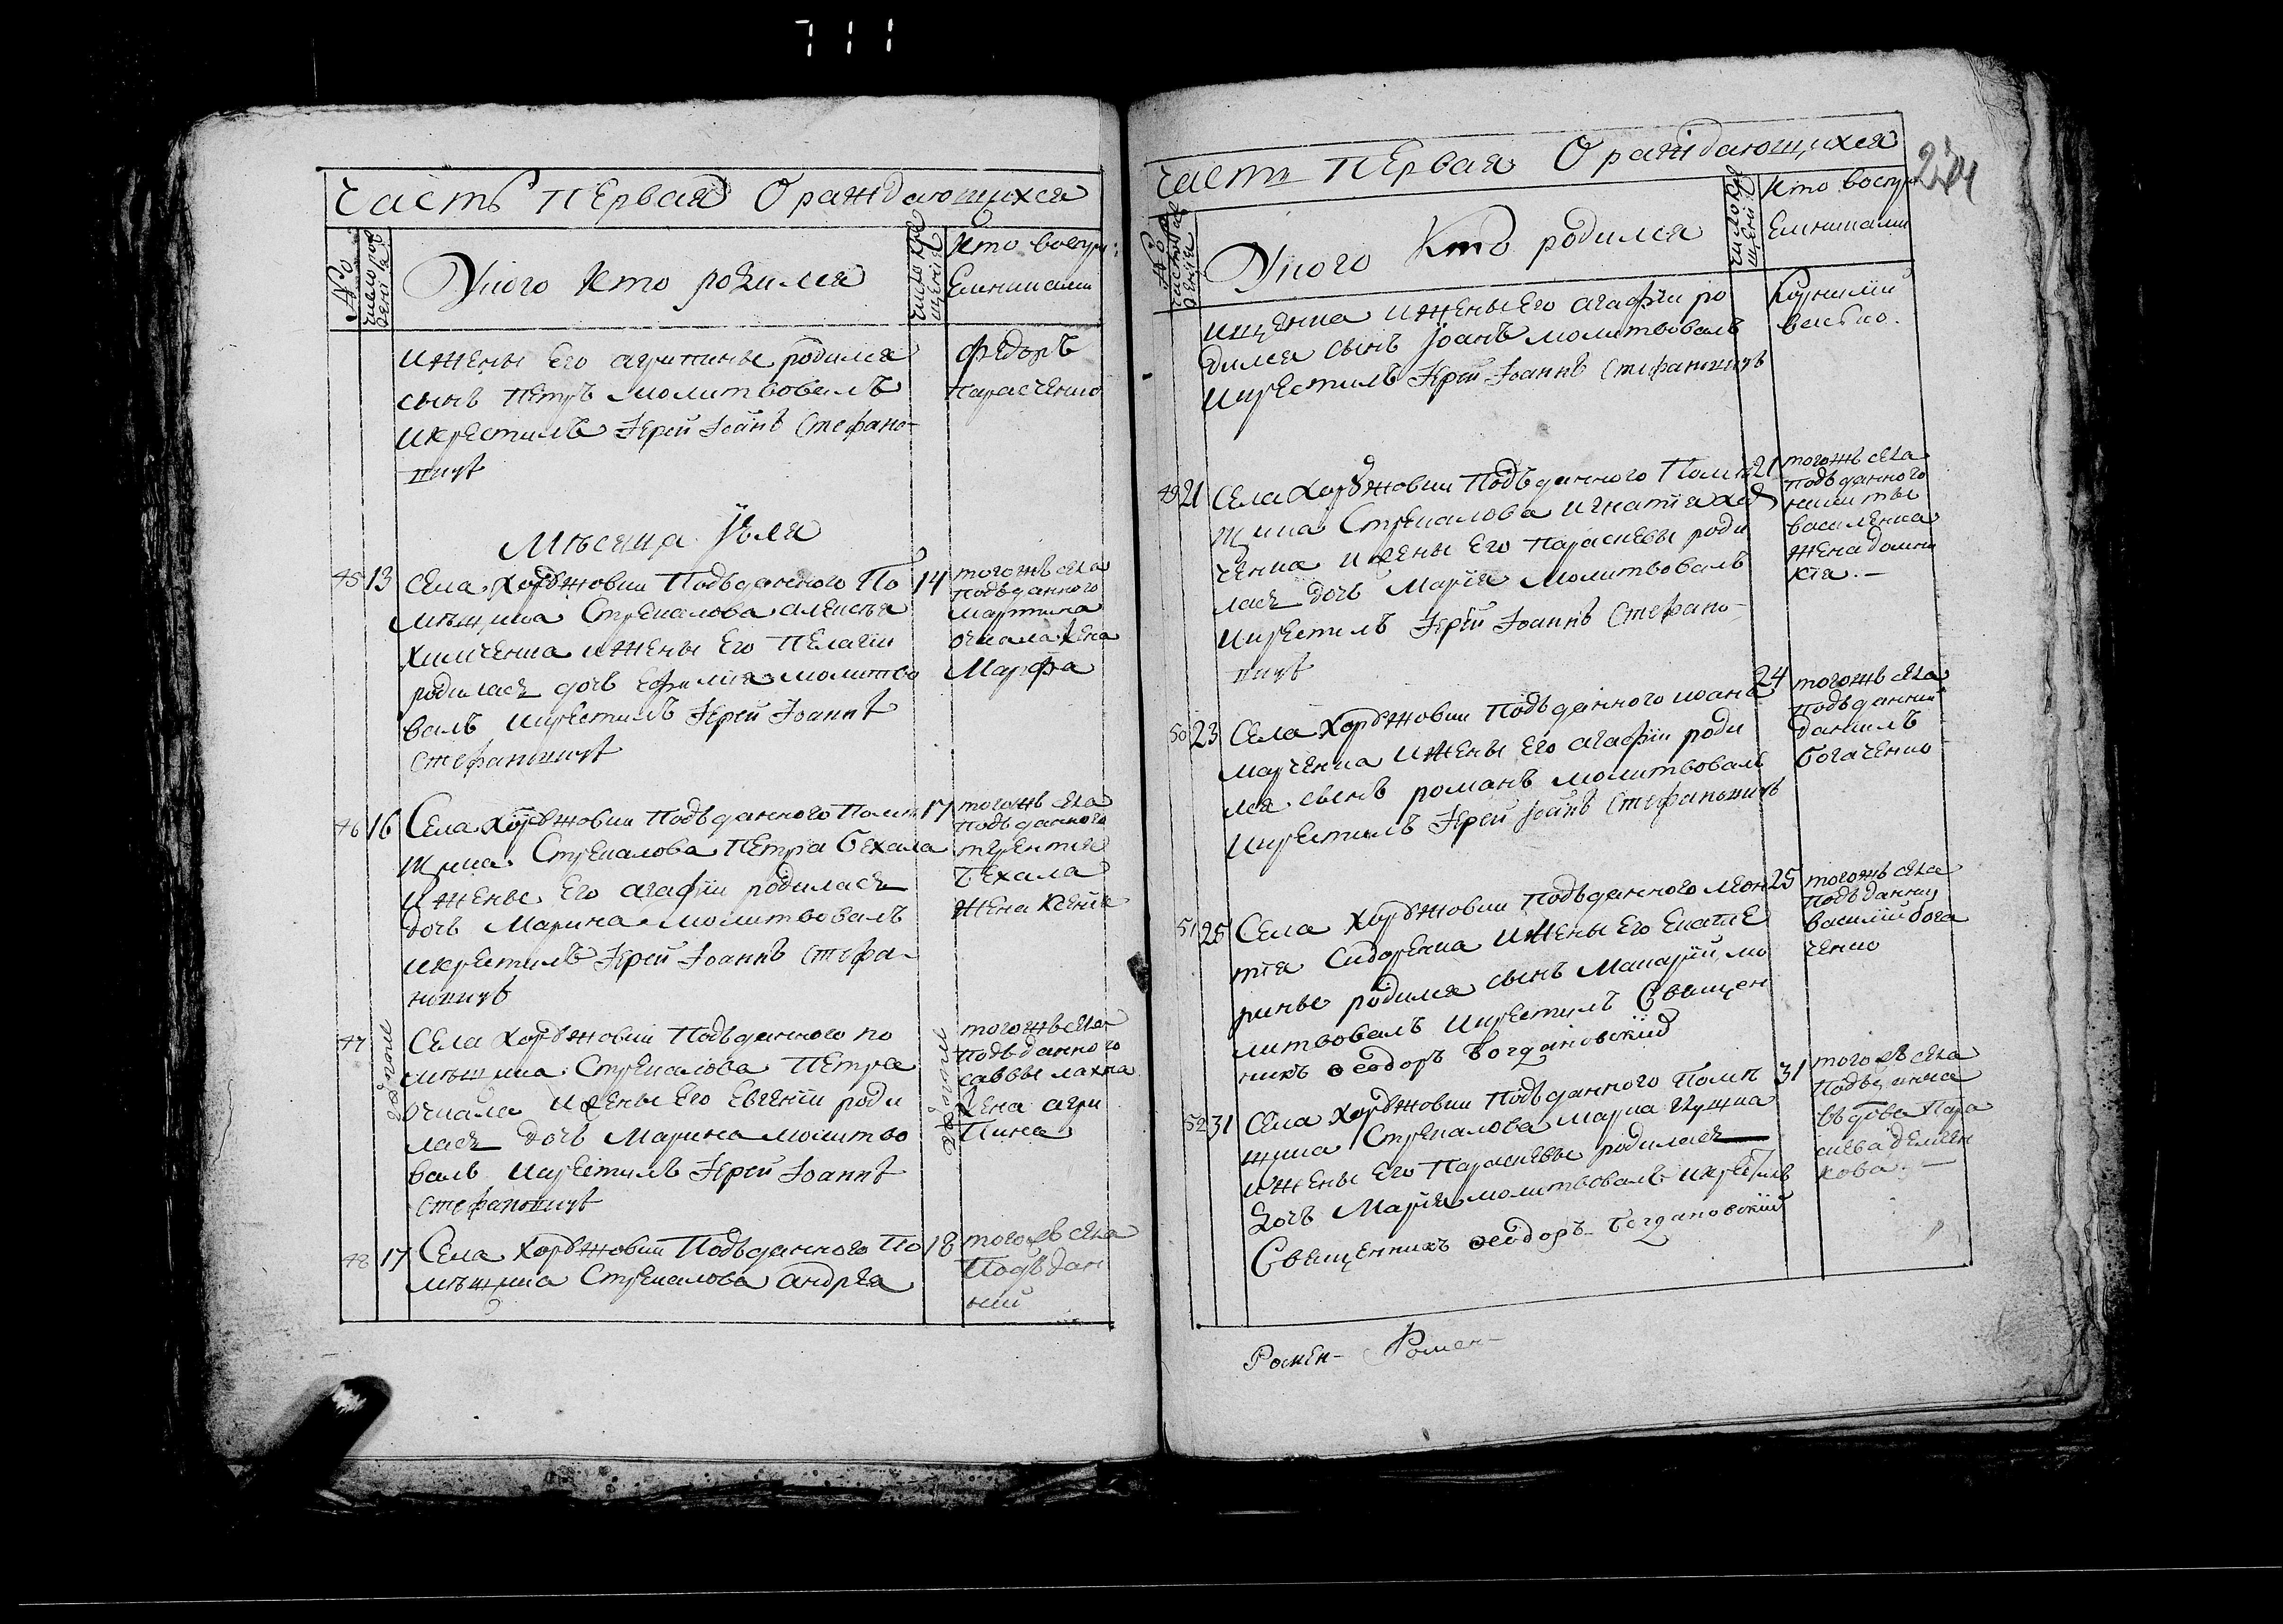 711
Часть первая О раждающихся
№
число рож
денїя
У кого кто родился
число кре
щенїя
кто воспри:
емниками
и жены его агрипины родился
сынъ петръ молитвовалъ
и крестилъ Іерей Іоаннъ Стефано-
Федоръ
Парасченко
Месяца Іюля
45 13 села Хоружовки Подъданного По
мѣщика Стрекалова алексѣя
Химченка и жены его пелагїи
родилась дочь молитво
валъ и крестилъ Іерей Іоаннъ
14 тогожъ села
подъданного
мартина
жена
Марфа
46 16 Села Хоружовки Подъданного Помѣ
щика Стрекалова Петра бехала
и жены его агафїи родилась
дочь Марина молитвовалъ
и крестилъ Іерей Іоаннъ Стефа-
17 тогожъ села
подъданного
терентїя
бехала
жена ксенїя
47 Села Хоружовки Подъданного по
мѣщика Стрекалова Петра
очкала и жены его Евгенїи роди
лась дочь Марина молитво
валъ и крестилъ Іерей Іоаннъ
тогожъ села
подъданного
саввы лахна
жена агри
пина
48 17 Села Хоружовки Подъданного По
мѣщика Стрекалова андрея
18 тогожъ села
Подъдан
ний
Часть первая О раждающихся
274
№
число рож
денїя
У кого Кто родился
число кре
щенїя
кто воспри
емниками
ищенка и жены его агафїи ро
дился сынъ Іоанъ молитвовалъ
и крестилъ Іерей Іоаннъ
49 21 Села Хоружовки Подъданного Помѣ
щика Стрекалова игнатїя
ченка и жены его параскевы роди
лась дочь Марїя молитвовалъ
и крестилъ Іерей Іоаннъ Стефано-
21 тогожъ села
подъданного
никиты
василенка
жена домни
кїя.-
50 23 Села Хоружовки подъданного иоана
марченка и жены его агафїи роди
лся сынъ романъ молитвовалъ
и крестилъ Іерей Іоаннъ
24 тогожъ села
подъданний
данилъ
богаченко
51 25 Села Хоружовки подъданного леон
тїя Сидоренка и жены его Екате
рины родился сынъ Макарїй мо
литвовалъ и крестилъ Священ
никъ Ѳеодоръ Богдановскїй
25 тогожъ села
подъданни
василїй бога
ченко
52 31 Села Хоружовки подъданного Помѣ
щика Стрекалова марка
и жены его Параскевы родилась
дочь Марїя молитвовалъ и крестилъ
Священникъ Ѳеодоръ Богдановскїй
31 тогожъ села
подъданка
въдова Пара
скева демен
кова.-
Ромен- Ромен-